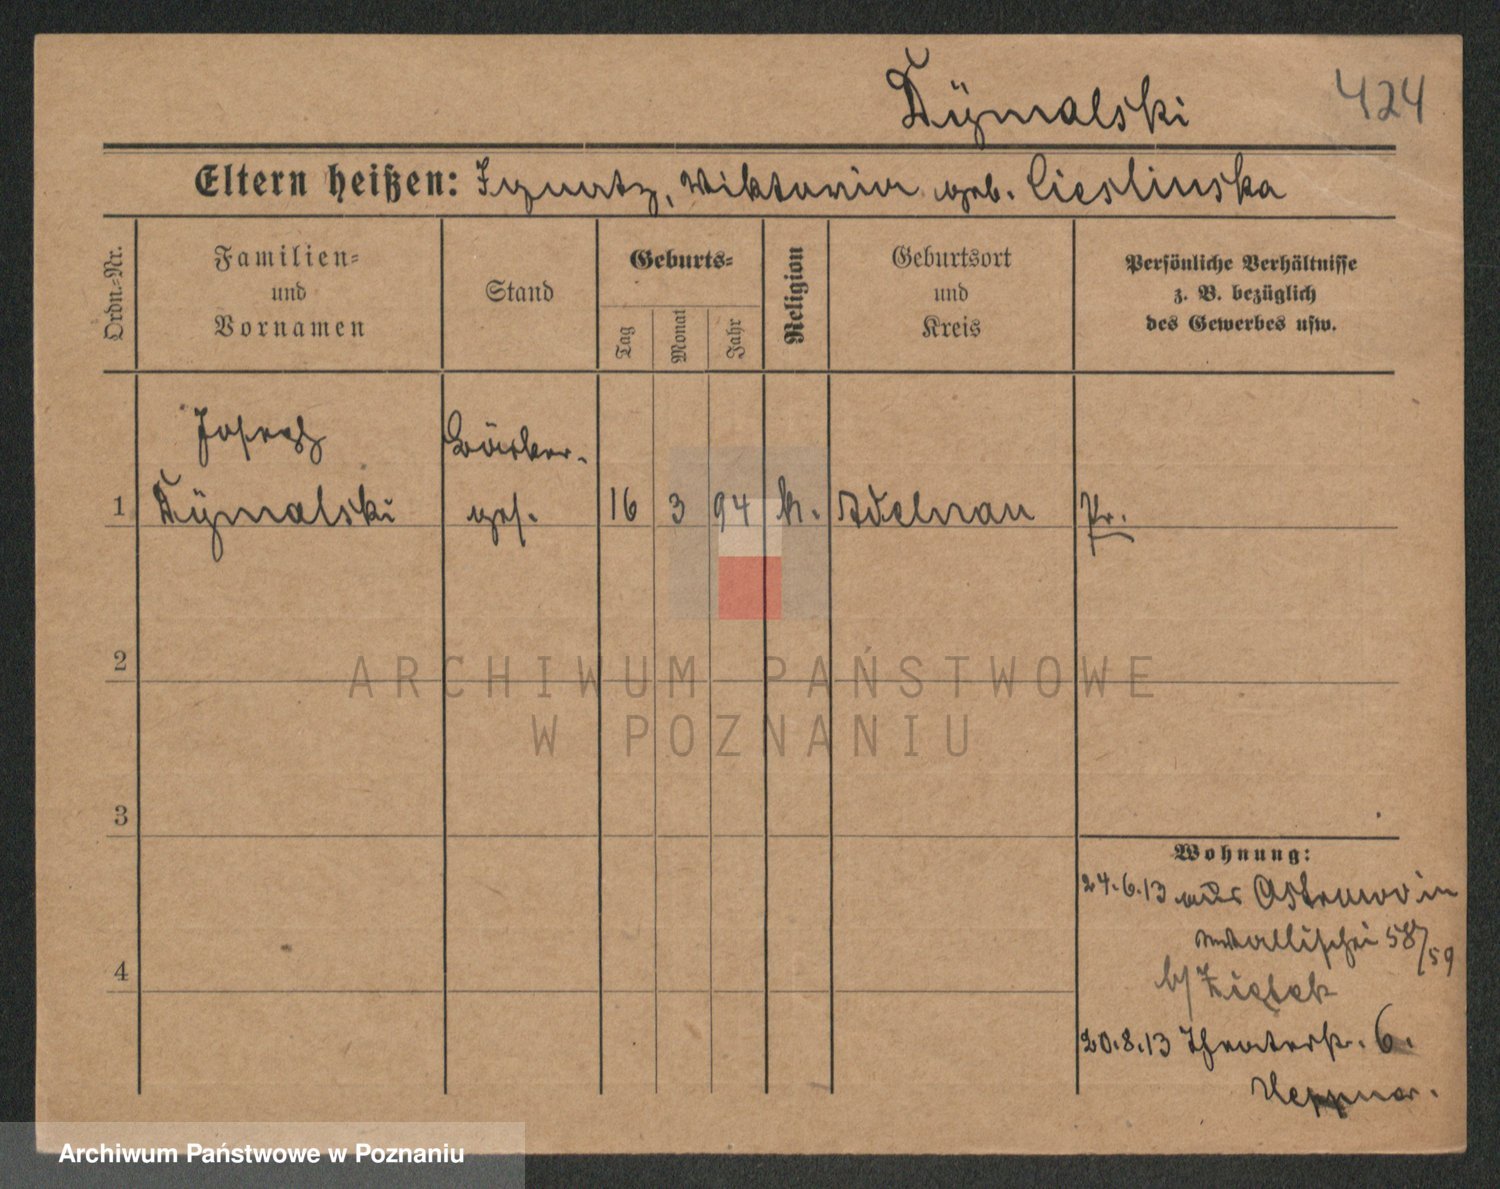 Dÿmalski 424
Eltern heißen: Ignatz, Wiktoria geb. Cieslinska
Ordn.-Nr.
Familien-
und
Vornamen
Stand
Geburts-
Tag
Monat
Jahr
Religion
Geburtsort
und
Kreis
Persönliche Verhältnisse
z. B. bezüglich
des Gewerbes usw.
Joseph Bäcker-
1 Dÿmalski ges. 16 3 94 k. Adelnau Pr.
2
3
4
Wohnung:
24.6.13 aus Ostrowo in
Wallischei 58/59
b/ Ziętek
20.8.13 Theaterstr. 6.
ARCHIWUM PAŃSTWOWE
W POZNANIU
Archiwum Państwowe w Poznaniu